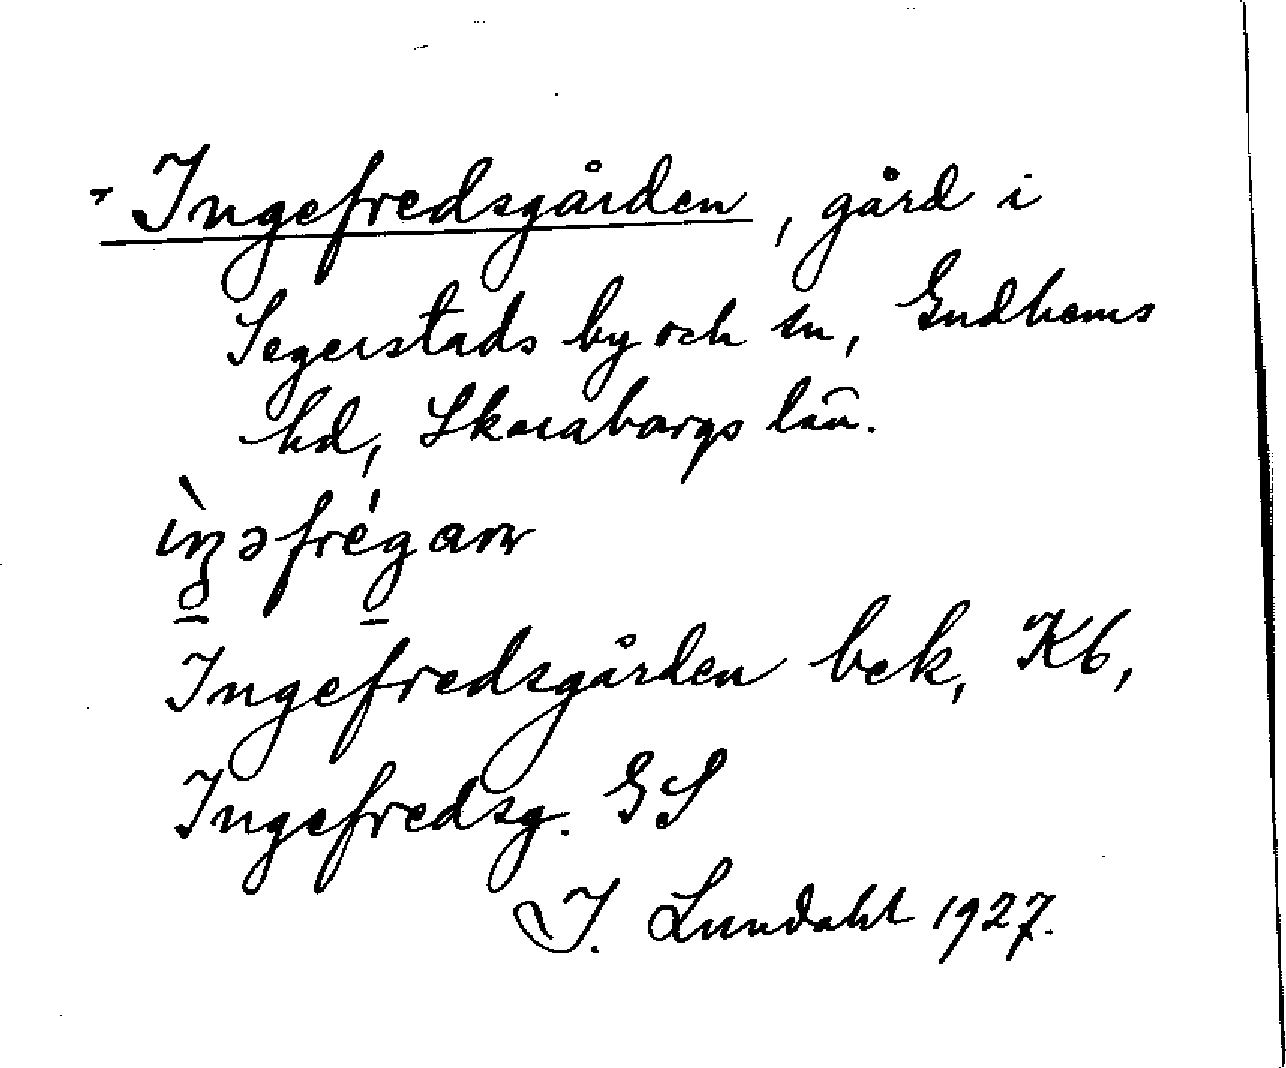 Ingefredsgården, gård i
Segerstads by och sn, Gudhems
hd, Skaraborgs län.
Ingefredsgården bek, Kb,
Ingefredsg. GS
I. Lundahl 1927.